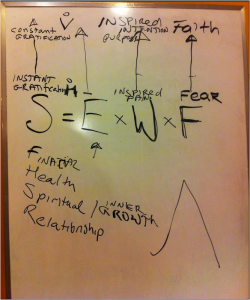 constant INSPIRED Faith
GRATIFICATION INTENTION
PURPOSE
INSTANT INSPIRED
GRATIFICATION H PAIN FEAR
S = E x W x F
Health
Spiritual / INNER
GROWTH
Relationship